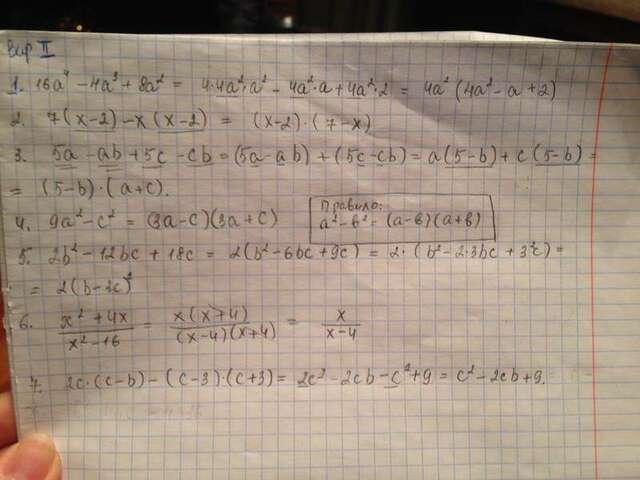 вар II
1. 16a⁴ - 4a³ + 8a² = 4·4a²·a² - 4a²·a + 4a²·2 = 4a²(4a² - a + 2)
2. 7(x-2) - x(x-2) = (x-2)·(7-x)
3. 5a - ab + 5c - cb = (5a - ab) + (5c - cb) = a(5-b) + c(5-b) =
= (5-b)·(a+c).
Правило:
4. 9a² - c² = (3a-c)(3a+c) a² - в² = (a-в)(a+в)
5. 2b² - 12bc + 18c = 2(b² - 6bc + 9c) = 2·(b² - 2·3bc + 3²c) =
= 2(b-3c)²
6. x² + 4x / x² - 16 = x(x+4) / (x-4)(x+4) = x / x-4
7. 2c·(c-b) - (c-3)·(c+3) = 2c² - 2cb - c² + 9 = c² - 2cb + 9.